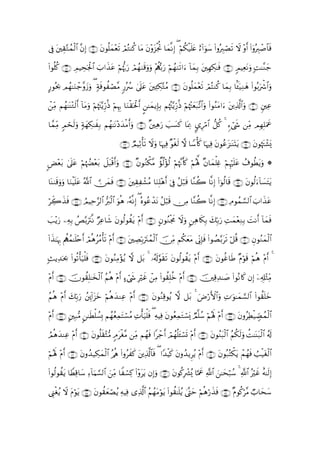 ٱصْلَوْهَا فَٱصْبِرُوٓا۟ أَوْ لَا تَصْبِرُوا۟ سَوَآءٌ عَلَيْكُمْ ۖ إِنَّمَا تُجْزَوْنَ مَا كُنتُمْ تَعْمَلُونَ ۝ إِنَّ ٱلْمُتَّقِينَ فِى
جَنَّٰتٍ وَنَعِيمٍ ۝ فَٰكِهِينَ بِمَآ ءَاتَىٰهُمْ رَبُّهُمْ وَوَقَىٰهُمْ رَبُّهُمْ عَذَابَ ٱلْجَحِيمِ ۝ كُلُوا۟
وَٱشْرَبُوا۟ هَنِيٓـًٔۢا بِمَا كُنتُمْ تَعْمَلُونَ ۝ مُتَّكِـِٔينَ عَلَىٰ سُرُرٍ مَّصْفُوفَةٍ ۖ وَزَوَّجْنَٰهُم بِحُورٍ
عِينٍ ۝ وَٱلَّذِينَ ءَامَنُوا۟ وَٱتَّبَعَتْهُمْ ذُرِّيَّتُهُم بِإِيمَٰنٍ أَلْحَقْنَا بِهِمْ ذُرِّيَّتَهُمْ وَمَآ أَلَتْنَٰهُم مِّنْ
عَمَلِهِم مِّن شَىْءٍ ۚ كُلُّ ٱمْرِئٍۭ بِمَا كَسَبَ رَهِينٌ ۝ وَأَمْدَدْنَٰهُم بِفَٰكِهَةٍ وَلَحْمٍ مِّمَّا
يَشْتَهُونَ ۝ يَتَنَٰزَعُونَ فِيهَا كَأْسًا لَّا لَغْوٌ فِيهَا وَلَا تَأْثِيمٌ ۝
۞ وَيَطُوفُ عَلَيْهِمْ غِلْمَانٌ لَّهُمْ كَأَنَّهُمْ لُؤْلُؤٌ مَّكْنُونٌ ۝ وَأَقْبَلَ بَعْضُهُمْ عَلَىٰ بَعْضٍ
يَتَسَآءَلُونَ ۝ قَالُوٓا۟ إِنَّا كُنَّا قَبْلُ فِىٓ أَهْلِنَا مُشْفِقِينَ ۝ فَمَنَّ ٱللَّهُ عَلَيْنَا وَوَقَىٰنَا
عَذَابَ ٱلسَّمُومِ ۝ إِنَّا كُنَّا مِن قَبْلُ نَدْعُوهُ ۖ إِنَّهُۥ هُوَ ٱلْبَرُّ ٱلرَّحِيمُ ۝ فَذَكِّرْ
فَمَآ أَنتَ بِنِعْمَتِ رَبِّكَ بِكَاهِنٍ وَلَا مَجْنُونٍ ۝ أَمْ يَقُولُونَ شَاعِرٌ نَّتَرَبَّصُ بِهِۦ رَيْبَ
ٱلْمَنُونِ ۝ قُلْ تَرَبَّصُوا۟ فَإِنِّى مَعَكُم مِّنَ ٱلْمُتَرَبِّصِينَ ۝ أَمْ تَأْمُرُهُمْ أَحْلَٰمُهُم بِهَٰذَآ ۚ
أَمْ هُمْ قَوْمٌ طَاغُونَ ۝ أَمْ يَقُولُونَ تَقَوَّلَهُۥ ۚ بَل لَّا يُؤْمِنُونَ ۝ فَلْيَأْتُوا۟ بِحَدِيثٍ
مِّثْلِهِۦٓ إِن كَانُوا۟ صَٰدِقِينَ ۝ أَمْ خُلِقُوا۟ مِنْ غَيْرِ شَىْءٍ أَمْ هُمُ ٱلْخَٰلِقُونَ ۝ أَمْ
خَلَقُوا۟ ٱلسَّمَٰوَٰتِ وَٱلْأَرْضَ ۚ بَل لَّا يُوقِنُونَ ۝ أَمْ عِندَهُمْ خَزَآئِنُ رَبِّكَ أَمْ هُمُ
ٱلْمُصَۣيْطِرُونَ ۝ أَمْ لَهُمْ سُلَّمٌ يَسْتَمِعُونَ فِيهِ ۖ فَلْيَأْتِ مُسْتَمِعُهُم بِسُلْطَٰنٍ مُّبِينٍ ۝ أَمْ
لَهُ ٱلْبَنَٰتُ وَلَكُمُ ٱلْبَنُونَ ۝ أَمْ تَسْـَٔلُهُمْ أَجْرًا فَهُم مِّن مَّغْرَمٍ مُّثْقَلُونَ ۝ أَمْ عِندَهُمُ
ٱلْغَيْبُ فَهُمْ يَكْتُبُونَ ۝ أَمْ يُرِيدُونَ كَيْدًا ۖ فَٱلَّذِينَ كَفَرُوا۟ هُمُ ٱلْمَكِيدُونَ ۝ أَمْ لَهُمْ
إِلَٰهٌ غَيْرُ ٱللَّهِ ۚ سُبْحَٰنَ ٱللَّهِ عَمَّا يُشْرِكُونَ ۝ وَإِن يَرَوْا۟ كِسْفًا مِّنَ ٱلسَّمَآءِ سَاقِطًا يَقُولُوا۟
سَحَابٌ مَّرْكُومٌ ۝ فَذَرْهُمْ حَتَّىٰ يُلَٰقُوا۟ يَوْمَهُمُ ٱلَّذِى فِيهِ يُصْعَقُونَ ۝ يَوْمَ لَا يُغْنِى